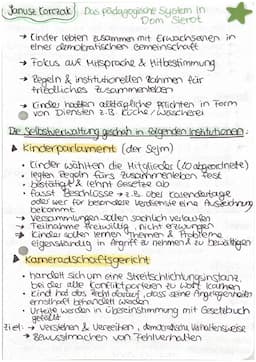 Janusz Korczak Das pädagogische System in
Dom Sierot
→ Kinder lebten zusammen mit Erwachsenen in
einer demokratischen Gemeinschaft
→ Fokus auf Mitsprache & Mitbestimmung
→ Regeln & institutionellen Rahmen für
friedliches Zusammenleben
→ Kinder hatten alltägliche Pflichten in Form
von Diensten z.B. Küche / Wäscherei
Die Selbstverwaltung geschah in folgenden Institutionen:
▶ Kinderparlament (der Sejm)
• Kinder wählten die Mitglieder (20 Abgeordnete)
• legten Regeln fürs Zusammenleben fest
• bestätigt & lehnt Gesetze ab
• fasst Beschlüsse → z.B. über Kalendertage
oder wer für besondere Verdienste eine Auszeichnung
bekommt
• Versammlungen sollen sachlich verlaufen
→ Teilnahme freiwillig, nicht erzwungen
→ Kinder sollen lernen Themen & Probleme
eigenständig in Angriff zu nehmen & zu bewältigen
▶ Kameradschaftsgericht
• handelt sich um eine Streitschlichtungsinstanz,
bei der alle Konfliktparteien zu Wort kamen
• Kind hat das Recht darauf, dass seine Angelegenheiten
ernsthaft behandelt werden
• Urteile werden in Übereinstimmung mit Gesetzbuch
gefällt
Ziel: → Verstehen & Verzeihen, demokratische Verhaltensweise
→ Bewusstmachen von Fehlverhalten